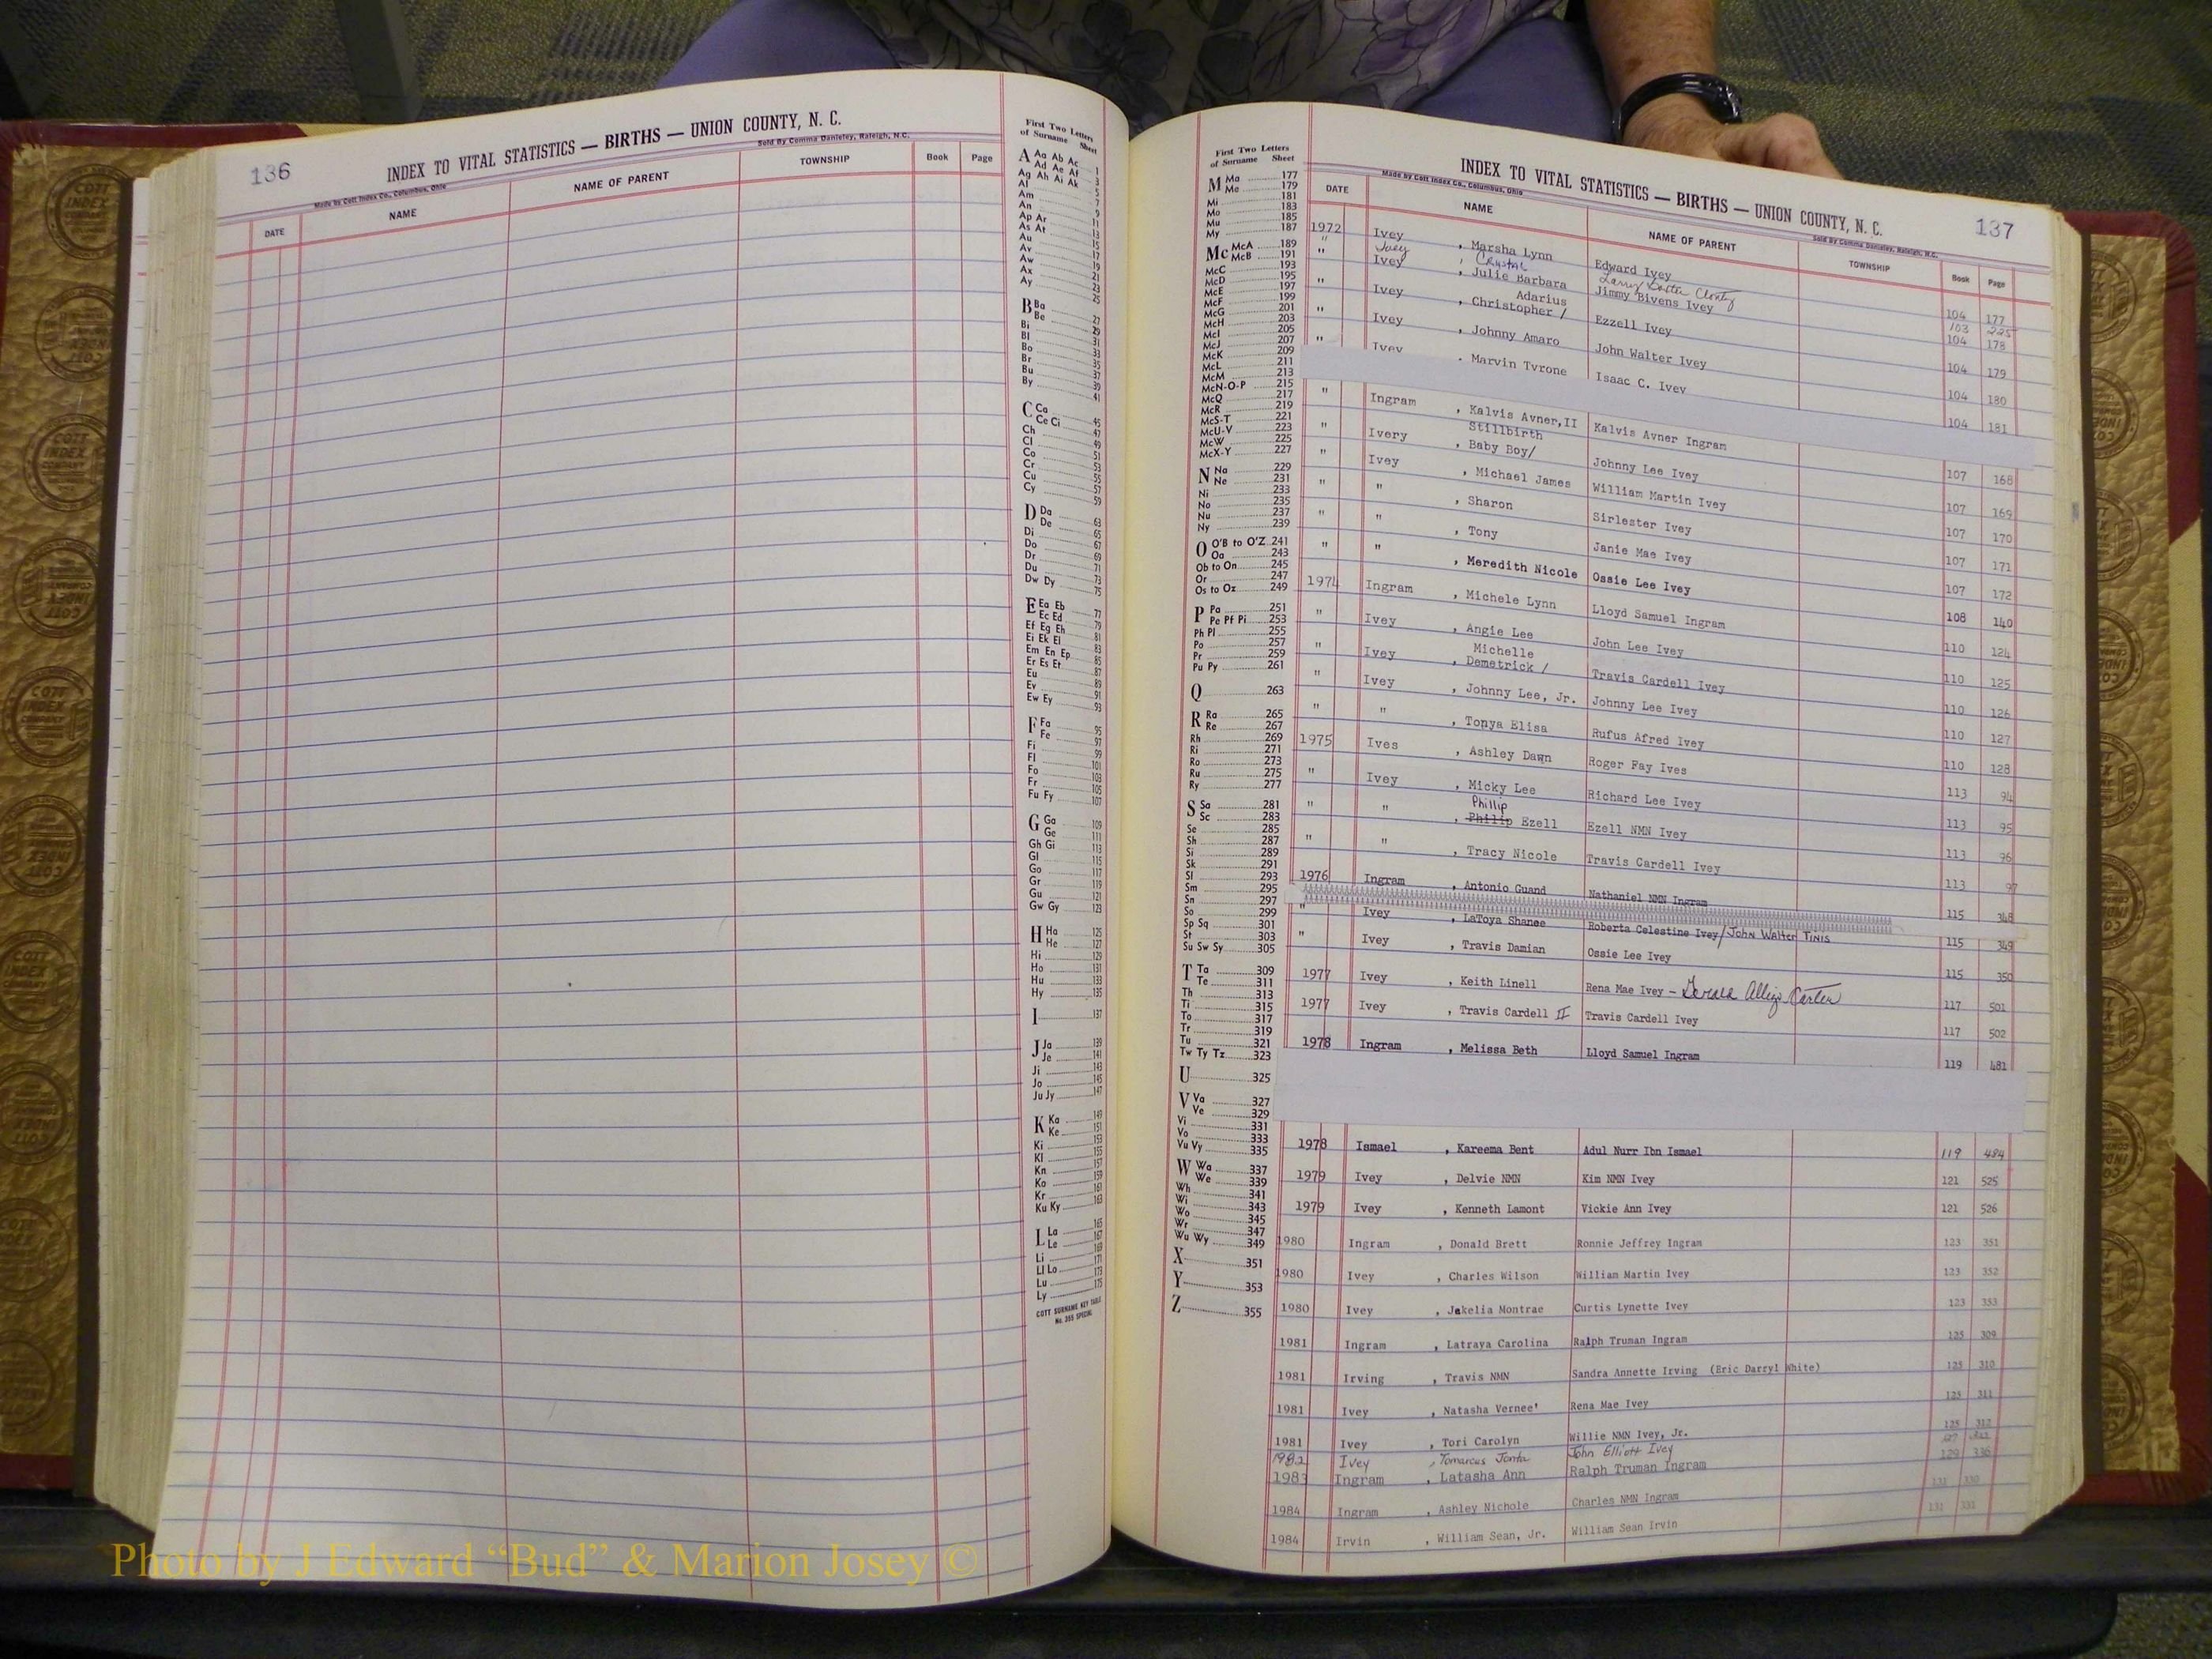 136
INDEX TO VITAL STATISTICS — BIRTHS — UNION COUNTY, N. C.
Made by Cott Index Co., Columbus, Ohio
Sold By Comma Danieley, Raleigh, N.C.
DATE NAME NAME OF PARENT TOWNSHIP Book Page
First Two Letters
of Surname Sheet
A Aa Ab Ac 1
Ad Ae Af 3
Ag Ah Ai Ak 5
Al 7
Am 9
An 11
Ap Ar 13
As At 15
Au 17
Av 19
Aw 21
Ax 23
Ay 25
B Ba 27
Be 29
Bi 31
Bl 33
Bo 35
Br 37
Bu 39
By 41
C Ca 45
Ce Ci 47
Ch 49
Cl 51
Co 53
Cr 55
Cu 57
Cy 59
D Da 63
De 65
Di 67
Do 69
Dr 71
Du 73
Dw Dy 75
E Ea Eb 77
Ec Ed 79
Ef Eg Eh 81
Ei Ek El 83
Em En Ep 85
Er Es Et 87
Eu 89
Ev 91
Ew Ey 93
F Fa 95
Fe 97
Fi 99
Fl 101
Fo 103
Fr 105
Fu Fy 107
G Ga 109
Ge 111
Gh Gi 113
Gl 115
Go 117
Gr 119
Gu 121
Gw Gy 123
H Ha 125
He 127
Hi 129
Ho 131
Hu 133
Hy 135
I 137
J Ja 139
Je 141
Ji 143
Jo 145
Ju Jy 147
K Ka 149
Ke 151
Ki 153
Kl 155
Kn 157
Ko 159
Kr 161
Ku Ky 163
L La 165
Le 167
Li 169
Ll Lo 171
Lu 173
Ly 175
COTT SURNAME KEY TABLE
No. 355 SPECIAL
First Two Letters
of Surname Sheet
M Ma 177
Me 179
Mi 181
Mo 183
Mu 185
My 187
Mc McA 189
McB 191
McC 193
McD 195
McE 197
McF 199
McG 201
McH 203
McI 205
McJ 207
McK 209
McL 211
McM 213
McN-O-P 215
McQ 217
McR 219
McS-T 221
McU-V 223
McW 225
McX-Y 227
N Na 229
Ne 231
Ni 233
No 235
Nu 237
Ny 239
O O'B to O'Z 241
Oa 243
Ob to On 245
Or 247
Os to Oz 249
P Pa 251
Pe Pf Pi 253
Ph Pl 255
Po 257
Pr 259
Pu Py 261
Q 263
R Ra 265
Re 267
Rh 269
Ri 271
Ro 273
Ru 275
Ry 277
S Sa 281
Sc 283
Se 285
Sh 287
Si 289
Sk 291
Sl 293
Sm 295
Sn 297
So 299
Sp Sq 301
St 303
Su Sw Sy 305
T Ta 309
Te 311
Th 313
Ti 315
To 317
Tr 319
Tu 321
Tw Ty Tz 323
U 325
V Va 327
Ve 329
Vi 331
Vo 333
Vu Vy 335
W Wa 337
We 339
Wh 341
Wi 343
Wo 345
Wr 347
Wu Wy 349
X 351
Y 353
Z 355
INDEX TO VITAL STATISTICS — BIRTHS — UNION COUNTY, N. C. 137
Made by Cott Index Co., Columbus, Ohio
Sold By Comma Danieley, Raleigh, N.C.
DATE NAME NAME OF PARENT TOWNSHIP Book Page
1972 Ivey , Marsha Lynn Edward Ivey 104 177
" Ivey , Crystal Larry 103 225
" Ivey , Julie Barbara Jimmy Bivens Ivey 104 178
Adarius
" Ivey , Christopher / Ezzell Ivey 104 179
" Ivey , Johnny Amaro John Walter Ivey 104 180
" Ivey , Marvin Tyrone Isaac C. Ivey 104 181
" Ingram , Kalvis Avner,II Kalvis Avner Ingram 107 168
Stillbirth
" Ivery , Baby Boy/ Johnny Lee Ivey 107 169
" Ivey , Michael James William Martin Ivey 107 170
" " , Sharon Sirlester Ivey 107 171
" " , Tony Janie Mae Ivey 107 172
" " , Meredith Nicole Ossie Lee Ivey 108 140
1974 Ingram , Michele Lynn Lloyd Samuel Ingram 110 124
" Ivey , Angie Lee John Lee Ivey 110 125
Michelle
" Ivey , Demetrick / Travis Cardell Ivey 110 126
" Ivey , Johnny Lee, Jr. Johnny Lee Ivey 110 127
" " , Tonya Elisa Rufus Afred Ivey 110 128
1975 Ives , Ashley Dawn Roger Fay Ives 113 94
" Ivey , Micky Lee Richard Lee Ivey 113 95
Phillip
" " , Philip Ezell Ezell NMN Ivey 113 96
" " , Tracy Nicole Travis Cardell Ivey 113 97
1976 Ingram , Antonio Guand Nathaniel NMN Ingram 115 348
" Ivey , LaToya Shanee Roberta Celestine Ivey/John Walter Tinis 115 349
" Ivey , Travis Damian Ossie Lee Ivey 115 350
1977 Ivey , Keith Linell Rena Mae Ivey - 117 501
1977 Ivey , Travis Cardell II Travis Cardell Ivey 117 502
1978 Ingram , Melissa Beth Lloyd Samuel Ingram 119 481
1978 Ismael , Kareema Bent Adul Nurr Ibn Ismael 119 484
1979 Ivey , Delvie NMN Kim NMN Ivey 121 525
1979 Ivey , Kenneth Lamont Vickie Ann Ivey 121 526
1980 Ingram , Donald Brett Ronnie Jeffrey Ingram 123 351
1980 Ivey , Charles Wilson William Martin Ivey 123 352
1980 Ivey , Jakelia Montrae Curtis Lynette Ivey 123 353
1981 Ingram , Latraya Carolina Ralph Truman Ingram 125 309
1981 Irving , Travis NMN Sandra Annette Irving (Eric Darryl White) 125 310
1981 Ivey , Natasha Vernee' Rena Mae Ivey 125 311
1981 Ivey , Tori Carolyn Willie NMN Ivey, Jr. 125 312
1982 Ivey , Tomarcus John Elliott Ivey
1983 Ingram , Latasha Ann Ralph Truman Ingram 129 336
1984 Ingram , Ashley Nichole Charles NMN Ingram 131 330
1984 Irvin , William Sean, Jr. William Sean Irvin 131 331
Photo by J Edward “Bud” & Marion Josey ©